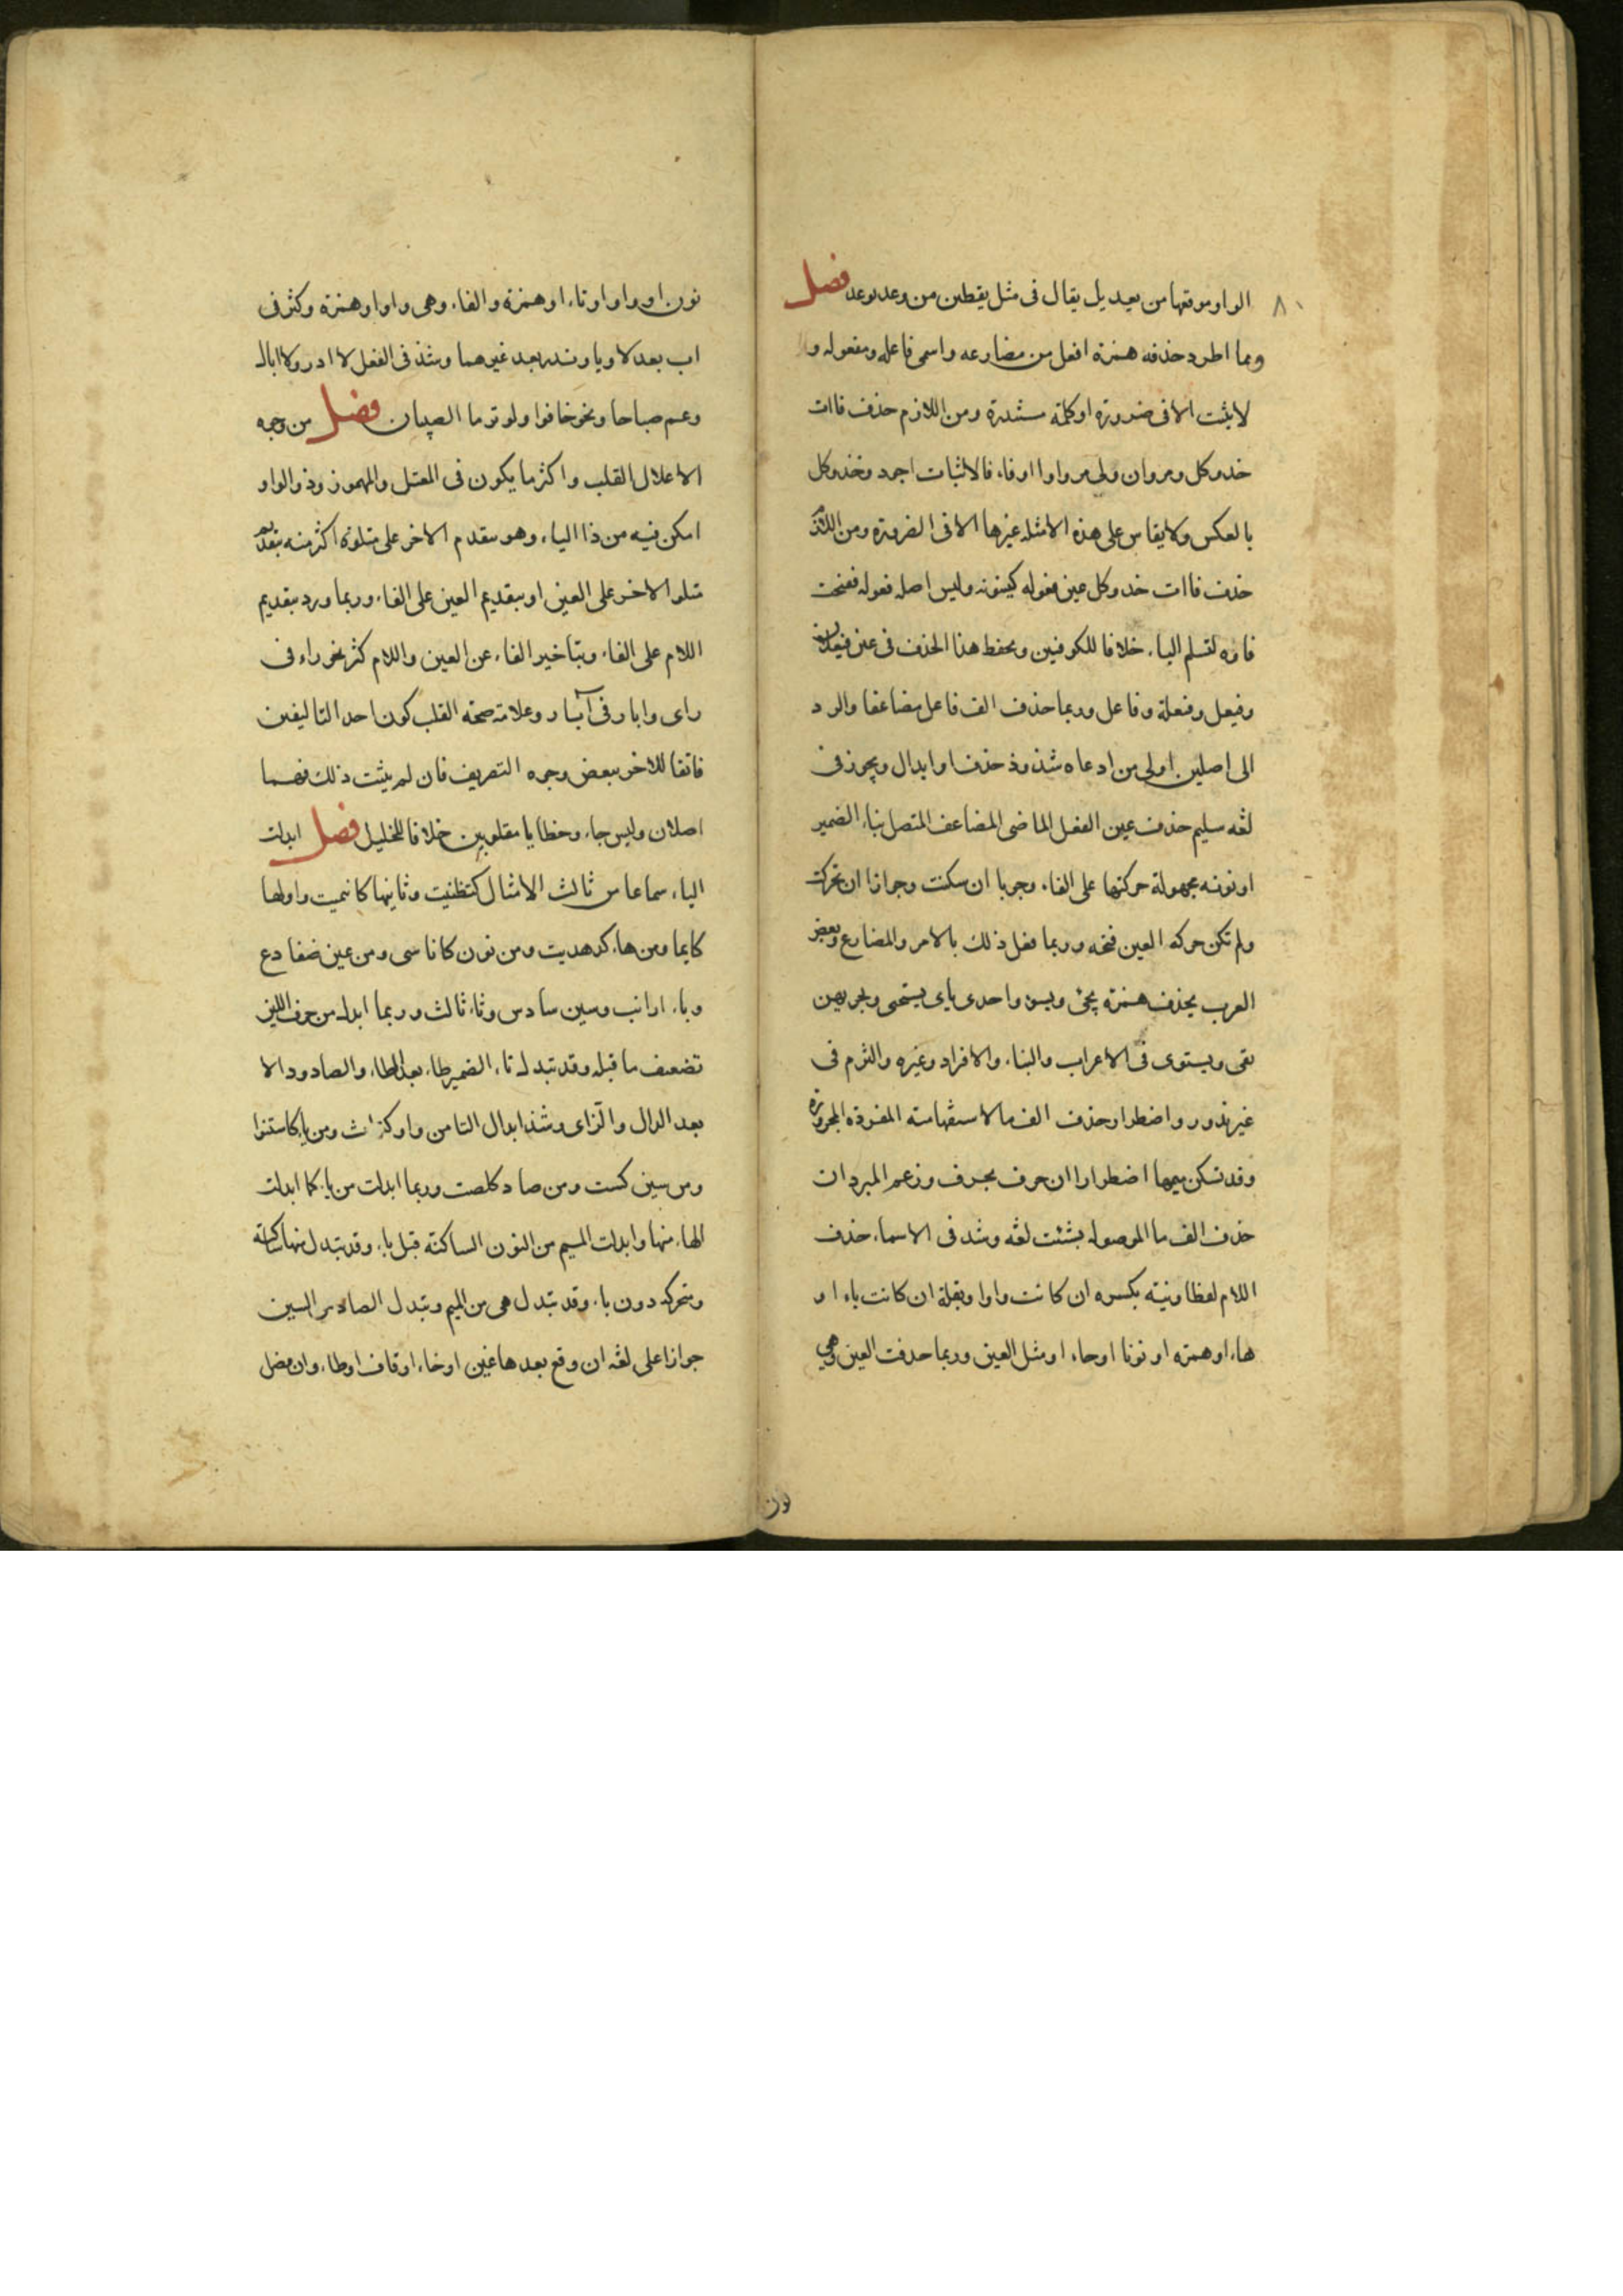 ٨٠
الواو موقعها من يعد بل يقال فى مثل يقطين من وعد يوعد فصل
ومما اطرد حذفه همزة افعل من مضارعه واسمى فاعله ومفعوله و
لا يثبت الا فى ضرورة او كلمة مستندرة ومن اللازم حذف فاات
خذ وكل ومر وان ولى مر واوا او فاء فالاثبات اجود وخذ وكل
بالعكس ولا يقاس على هذه الامثله غيرها الا فى الضرورة ومن اللازم
حذف فاات خذ وكل عين فعوله كينونه وليس اصله فعوله ففتحت
فاوه لتسلم الياء خلافا للكوفيين ويحفظ هذا الحذف فى عين فيعلان
وفيعل وفيعلة وفاعل وربما حذف الف فاعل مضاعفا والرد
الى اصلين اولى من ادعاه شذوذ حذف او ابدال ويجوز فى
لغه سليم حذف عين الفعل الماضى المضاعف المتصل بتاء الضمير
او نونه مجهولة حركتها على الفاء وجوبا ان سكنت وجوازا ان تحركت
ولم تكن حركه العين فتحه وربما فعل ذلك بالامر والمضارع وبعض
العرب يحذف همزة يجئ ويسو واحدى ياى يستحى ويجريهن
يقى ويستوى فى الاعراب والبناء والافراد وغيره والتزم فى
غير ندور واضطرار حذف الف ما الاستفهامية المفردة المجرورة
وقد تسكن ميمها اضطرارا ان حرف بحرف وزعم المبرد ان
حذف الف ما الموصوله بشئت لغه وشذ فى الاسماء حذف
اللام لفظا ونية بكسره ان كانت واوا وبقلة ان كانت ياء او
هاء او همزه او نونا او حاء او مثل العين وربما حذفت العين وهى
ون
نون او واو او تاء او همزة والفاء وهى واو او همزة وكثر فى
اب بعد لا ويا وندر بعد غيرهما وشذ فى الفعل لا ادر ولا ابال
وعم صباحا ونحو خافوا ولو تر ما الصبيان فصل من وجوه
الاعلال القلب واكثر ما يكون فى المعتل والمهموز وذو الواو
امكن فيه من ذا الياء وهو بتقدم الاخر على متلوه اكثر منه بتقديم
متلو الاخر على العين او بتقديم العين على الفاء وربما ورد بتقديم
اللام على الفاء وبتاخير الفاء عن العين واللام كثر نحو راء فى
راى وابار فى آبار وعلامة صحة القلب كون احد التاليفين
فائقا للاخر ببعض وجوه التصريف فان لم يثبت ذلك فهما
اصلان وليس جاء وخطايا مقلوبين خلافا للخليل فصل ابدلت
الياء سماعا من ثالث الامثال كتظنيت وثانيها كائتميت واولها
كايما ومن هاء كدهديت ومن نون كاناسى ومن عين ضفادع
وباء ارانب وسين سادس وثاء ثالث وربما ابدل من حرف اللين
تضعيف ما قبله وقد تبدل تاء الضمير طاء بعد الطاء والصاد ودالا
بعد الدال والزاى وشذ ابدال التا من واو كتراث ومن ياء كاستنوا
ومن سين كست ومن صاد كلصت وربما ابدلت من ياء كما ابدلت
الهاء منها وابدلت الميم من النون الساكنة قبل باء وقد تبدل منها ساكنة
ومتحركه دون باء وقد تبدل هى من الميم وتبدل الصاد من السين
جوازا على لغه ان وقع بعدها غين او خاء او قاف او طاء وان فصل